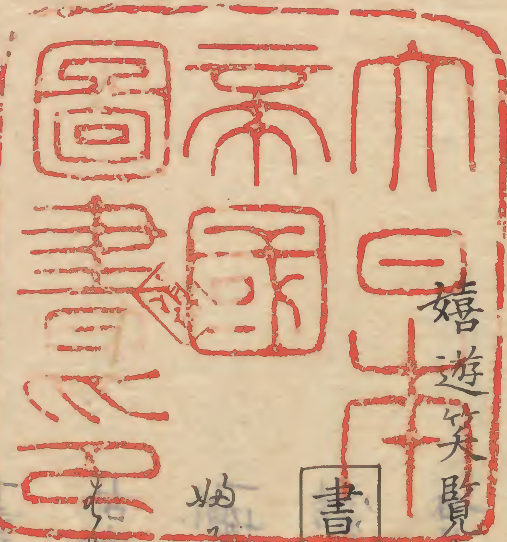 大日本
帝國
圖書印
嬉遊笑覽
書
婦